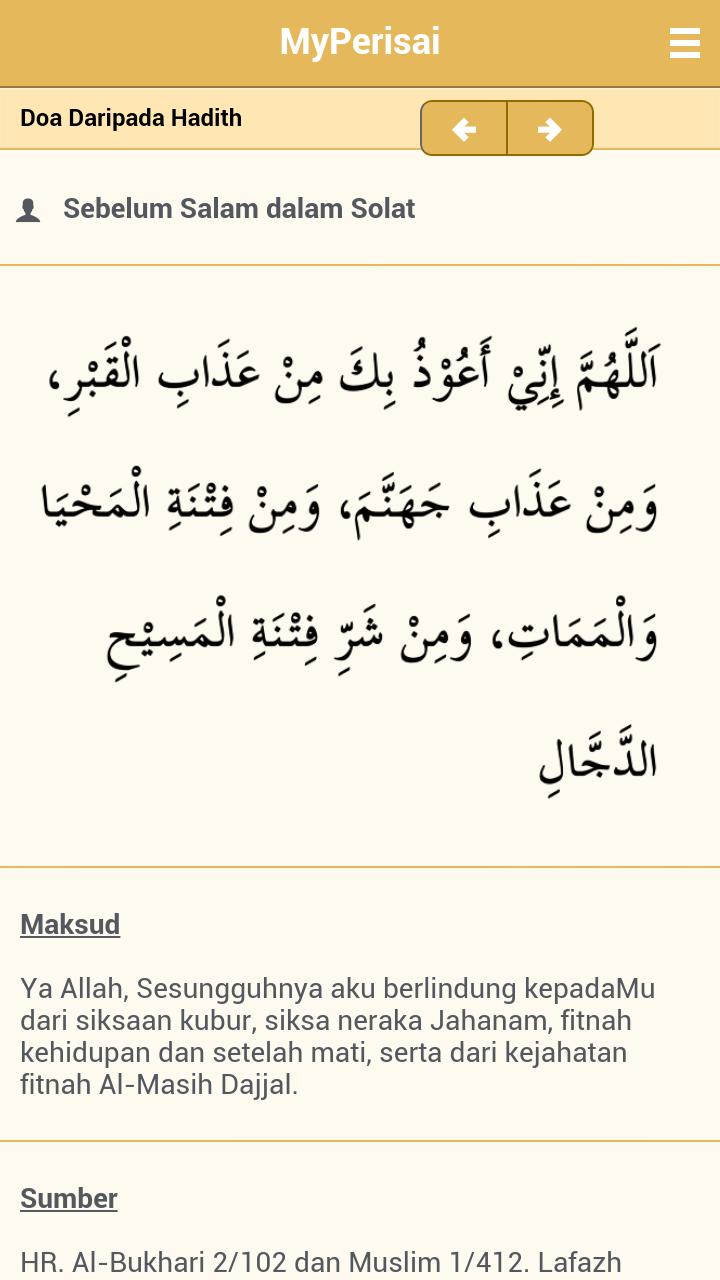 MyPerisai
Doa Daripada Hadith
Sebelum Salam dalam Solat
اَللَّهُمَّ إِنِّيْ أَعُوْذُ بِكَ مِنْ عَذَابِ الْقَبْرِ،
وَمِنْ عَذَابِ جَهَنَّمَ، وَمِنْ فِتْنَةِ الْمَحْيَا
وَالْمَمَاتِ، وَمِنْ شَرِّ فِتْنَةِ الْمَسِيْحِ
الدَّجَّالِ
Maksud
Ya Allah, Sesungguhnya aku berlindung kepadaMu
dari siksaan kubur, siksa neraka Jahanam, fitnah
kehidupan dan setelah mati, serta dari kejahatan
fitnah Al-Masih Dajjal.
Sumber
HR. Al-Bukhari 2/102 dan Muslim 1/412. Lafazh